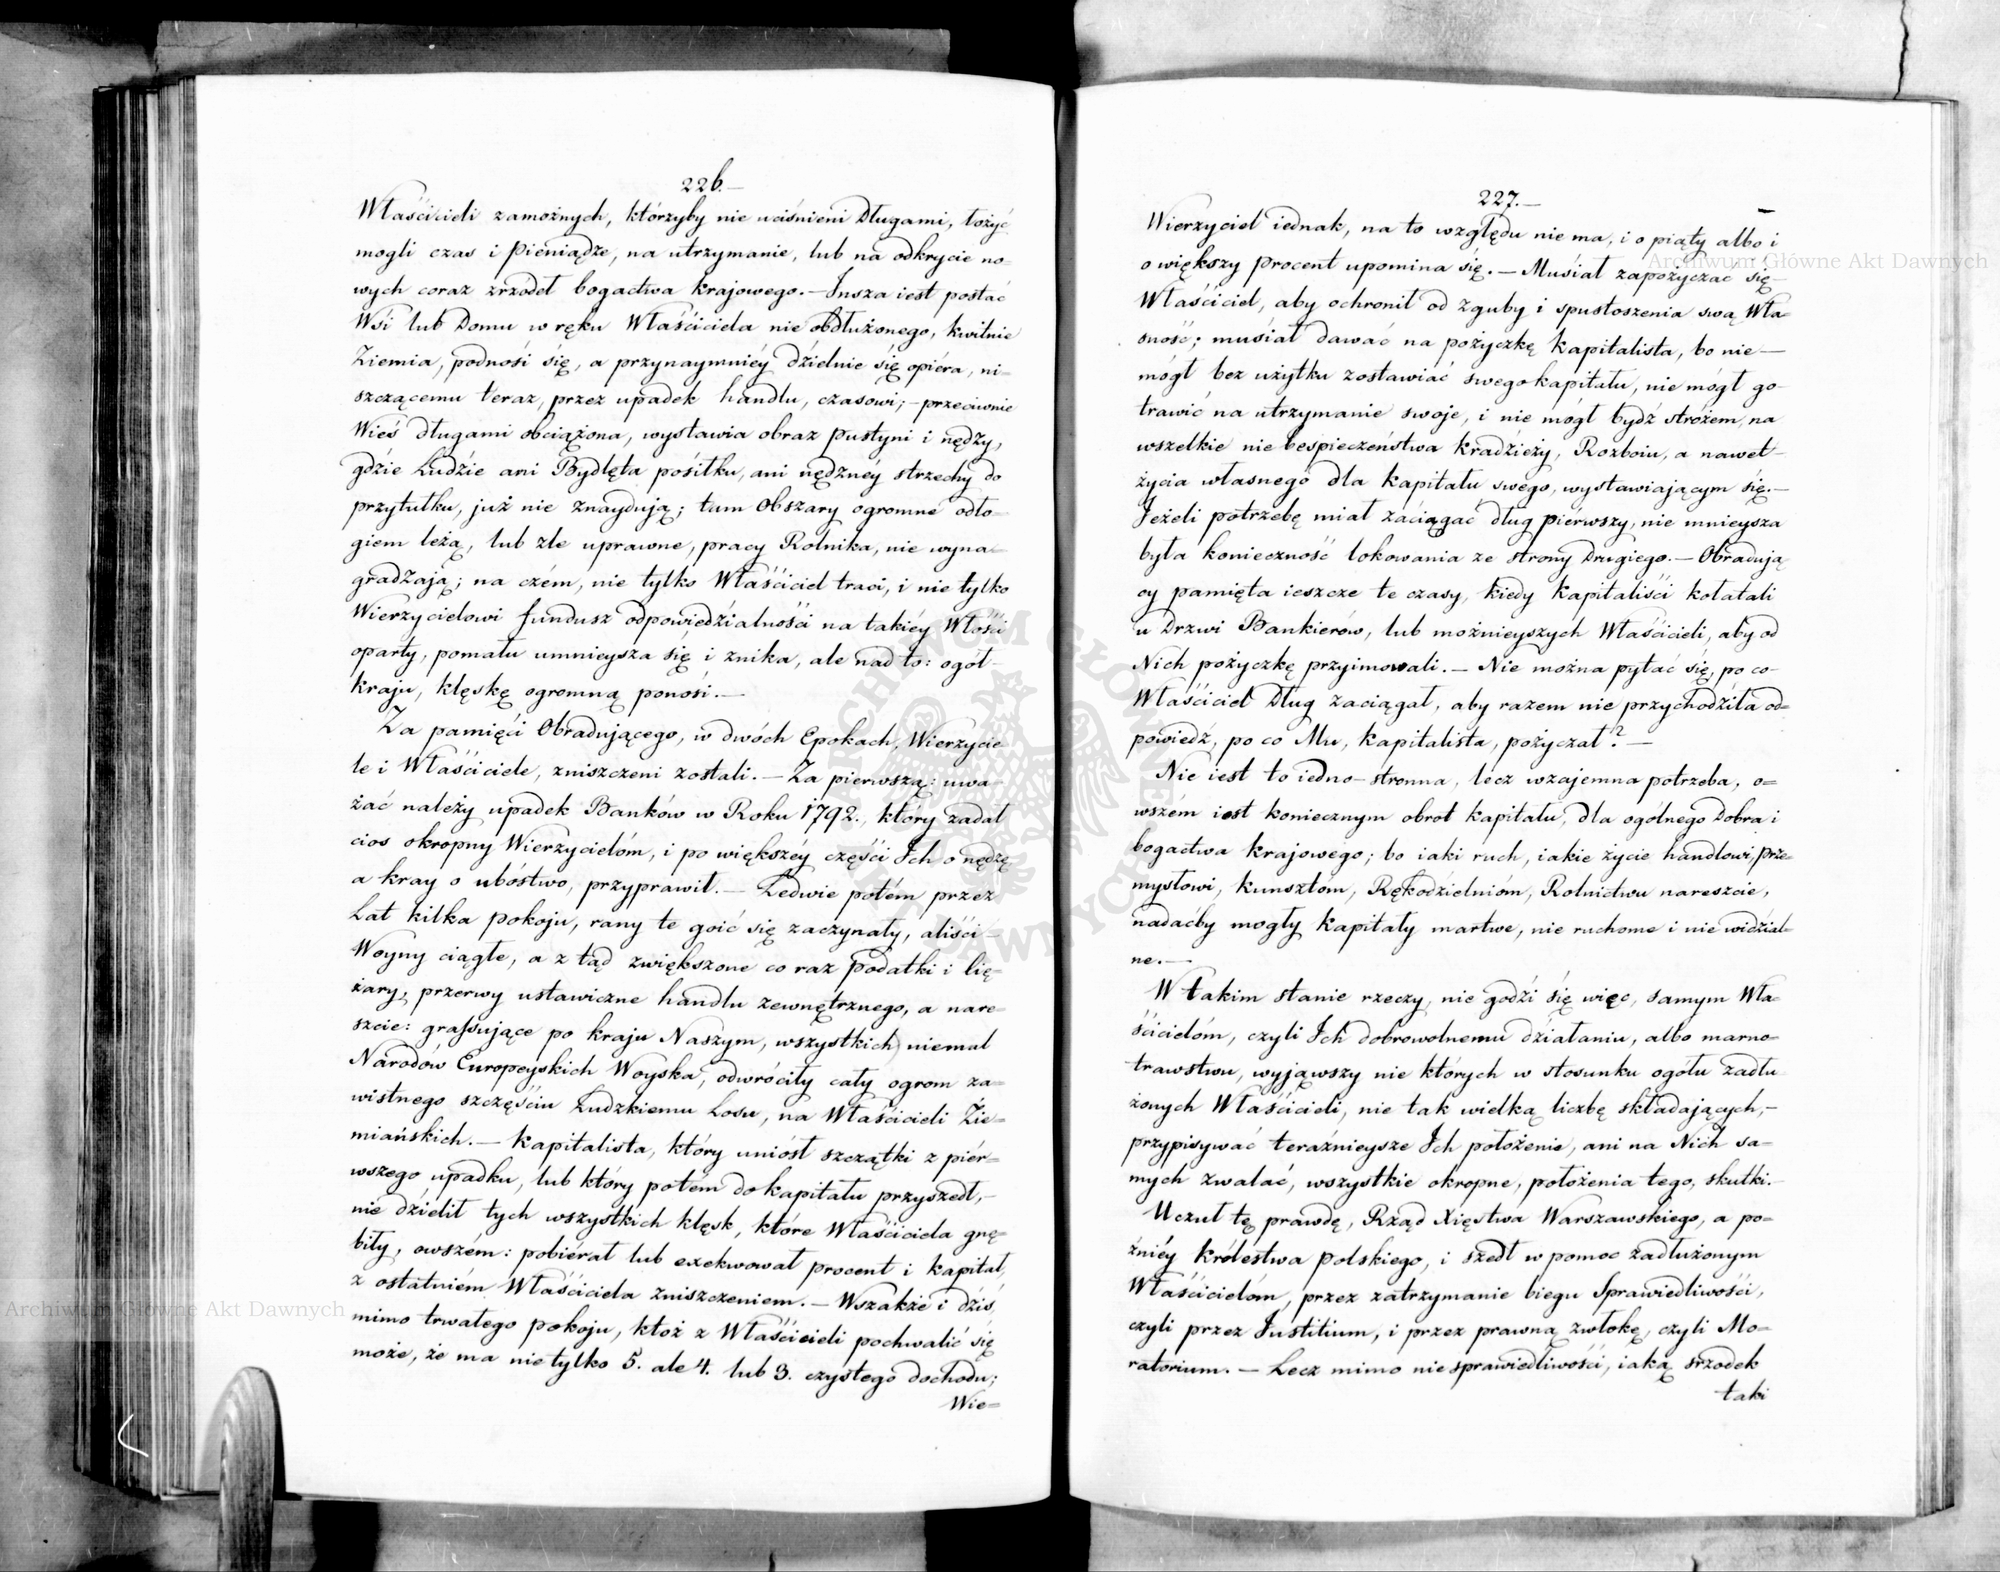 226.—
Właścicieli zamożnych, którzyby nie uciśnieni Długami, łożyć
mogli czas i Pieniądze, na utrzymanie, lub na odkrycie no-
wych coraz zrzodeł bogactwa krajowego. — Insza iest postać
Wsi lub Domu w ręku Właściciela nie obdłużonego, kwitnie
Ziemia, podnosi się, a przynaymniéy dzielnie się opiéra, ni-
szczącemu teraz, przez upadek handlu, czasowi; — przeciwnie
Wieś długami obciążona, wystawia obraz pustyni i nędzy,
gdzie Ludzie ani Bydlęta posiłku, ani nędznéy strzechy do
przytułku, już nie znaydują; tam Obszary ogromne odło-
giem leżą, lub zle uprawne, pracy Rolnika, nie wyna-
gradzają; na czém, nie tylko Właściciel traci, i nie tylko
Wierzycielowi fundusz odpowiedzialności na takiéy Włości
oparty, pomału umnieysza się i znika, ale nad to: ogół-
kraju, klęskę ogromną ponosi. —
Za pamięci Obradującego, w dwóch Epokach, Wierzycie
le i Właściciele, zniszczeni zostali. — Za pierwszą: uwa-
żać należy upadek Banków w Roku 1792., który zadał
cios okropny Wierzycielóm, i po większéy części Ich o nędzę
a kray o ubóstwo, przyprawił. — Ledwie potém przez
Lat kilka pokoju, rany te goić się zaczynały, aliści —
Woyny ciągłe, a z tąd zwiększone co raz podatki i cię-
żary, przerwy ustawiczne handlu zewnętrznego, a nare-
szcie: grassujące po kraju Naszym, wszystkich niemal
Narodów Europeyskich Woyska, odwróciły cały ogrom za-
wistnego szczęściu Ludzkiemu Losu, na Właścicieli Zie-
miańskich. — Kapitalista, który uniósł szczątki z piér-
wszego upadku, lub który potém do kapitału przyszedł, —
nie dzielił tych wszystkich klęsk, które Właściciela gnę-
biły, owszém: pobiérał lub exekwował procent i kapitał,
z ostatniém Właściciela zniszczeniem. — Wszakże i dziś,
mimo trwałego pokoju, któż z Właścicieli pochwalić się
może, że ma nietylko 5. ale 4. lub 3. czystego dochodu;
Wie-
227.—
Wierzyciel iednak, na to względu nie ma, i o piąty albo i
o większy procent upomina się. — Musiał zapożyczać się
Właściciel, aby ochronił od zguby i spustoszenia swą Wła-
sność; musiał dawać na pożyczkę kapitalista, bo nie —
mógł bez użytku zostawiać swego kapitału, nie mógł go-
trawić na utrzymanie swoje, i nie mógł bydź stróżem, na
wszelkie nie bespieczeństwa kradzieży, Rozboiu, a nawet —
życia własnego dla kapitału swego, wystawiającym się. —
Jeżeli potrzebę miał zaciągać dług piérwszy, nie mnieysza
była konieczność lokowania ze strony Drugiego. — Obradują
cy pamięta ieszcze te czasy, kiedy kapitaliści kołatali
u Drzwi Bankierów, lub możnieyszych Właścicieli, aby od
Nich pożyczkę przyimowali. — Nie można pytać się, po co-
Właściciel Dług zaciągał, aby razem nie przychodziła od-
powiedź, po co Mu, kapitalista, pożyczał? —
Nie iest to iedno-stronna, lecz wzajemna potrzeba, o-
wszém iest koniecznym obrot kapitału, dla ogólnego Dobra i
bogactwa krajowego; bo iaki ruch, iakie życie handlowi, prze-
mysłowi, kunsztóm, Rękodzielnióm, Rolnictwu nareszcie,
nadaćby mogły kapitały martwe, nie ruchome i nie widzial-
ne. —
W takim stanie rzeczy, nie godzi się więc, samym Wła-
ścicielóm, czyli Ich dobrowolnemu działaniu, albo marno-
trawstwu, wyjąwszy nie których w stosunku ogółu zadłu
żonych Właścicieli, nie tak wielką liczbę składających, —
przypisywać teraźnieysze Ich położenie, ani na Nich sa-
mych zwalać, wszystkie okropne, położenia tego, skutki. —
Uczuł tę prawdę, Rząd Xięstwa Warszawskiego, a po-
źniéy Królestwa polskiego, i szedł w pomoc zadłużonym
Właścicielóm, przez zatrzymanie biegu Sprawiedliwości,
czyli przez Justitium, i przez prawną zwłokę, czyli Mo-
ratorium. — Lecz mimo niesprawiedliwości, iaką srzodek
taki
Archiwum Główne Akt Dawnych
Archiwum Główne Akt Dawnych
ARCHIWUM GŁÓWNE AKT DAWNYCH